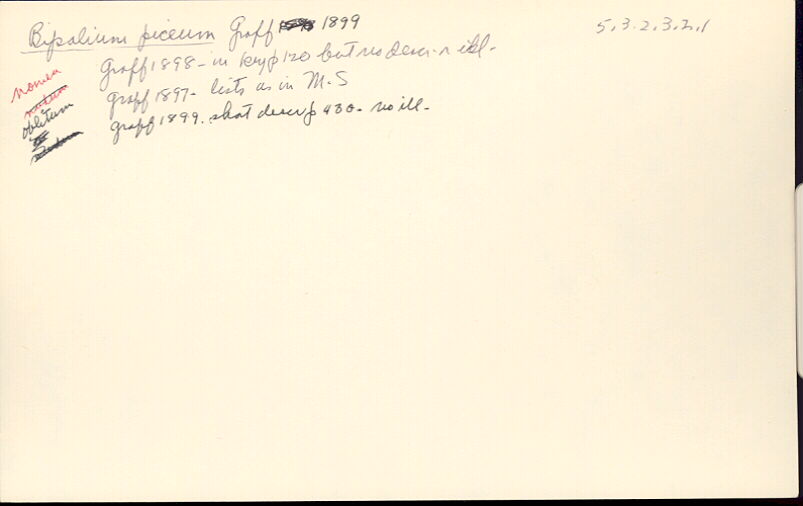 Bipalium piceum Graff 1899
5.3.2.3.2.1
Graff 1898 - in key p 120 but no descr. n ill.
Graff 1897 - lists as in M.S
Graff 1899. short descr p 430 - no ill.
nomen
oblitum